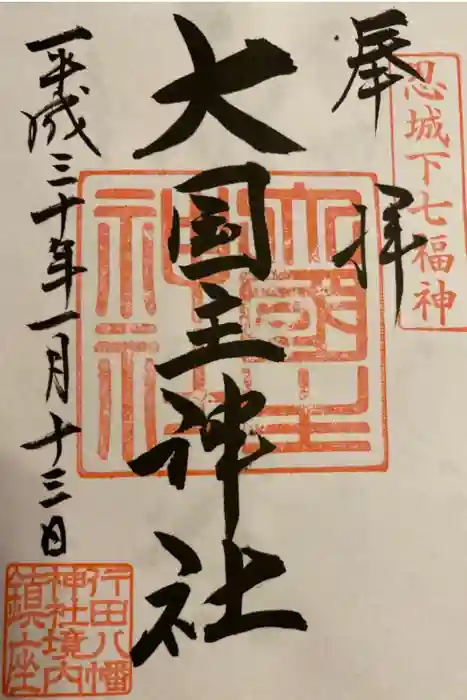 忍城下七福神
奉拝
大国主神社
平成三十年一月十三日
大國主神社
行田八幡
神社境内
鎮座